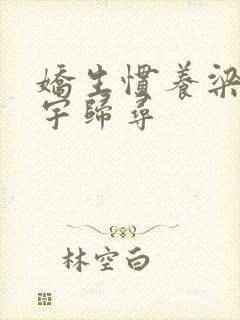 嬌生慣養梁
宇歸尋
林空白